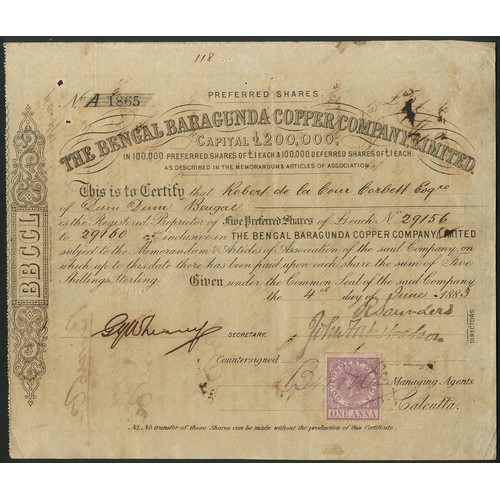 118
PREFERRED SHARES.
No. A 1865
THE BENGAL BARAGUNDA COPPER COMPANY, LIMITED.
CAPITAL £200,000.
IN 100,000 PREFERRED SHARES OF £1 EACH & 100,000 DEFERRED SHARES OF £1 EACH.
AS DESCRIBED IN THE MEMORANDUM & ARTICLES OF ASSOCIATION.
This is to Certify that Robert de la Cour Corbett Esqre
of Dum Dum, Bengal
is the Registered Proprietor of Five Preferred Shares of £1 each No. 29156
to 29160 inclusive in THE BENGAL BARAGUNDA COPPER COMPANY, LIMITED
subject to the Memorandum & Articles of Association of the said Company, on
which up to this date there has been paid upon each share the sum of Five
Shillings Sterling. Given under the Common Seal of the said Company
the 4th day of June 1883
BBCCL
R Saunders
SECRETARY.
DIRECTORS.
Countersigned
Managing Agents
Calcutta.
ONE ANNA
N.B. No transfer of these Shares can be made without the production of this Certificate.